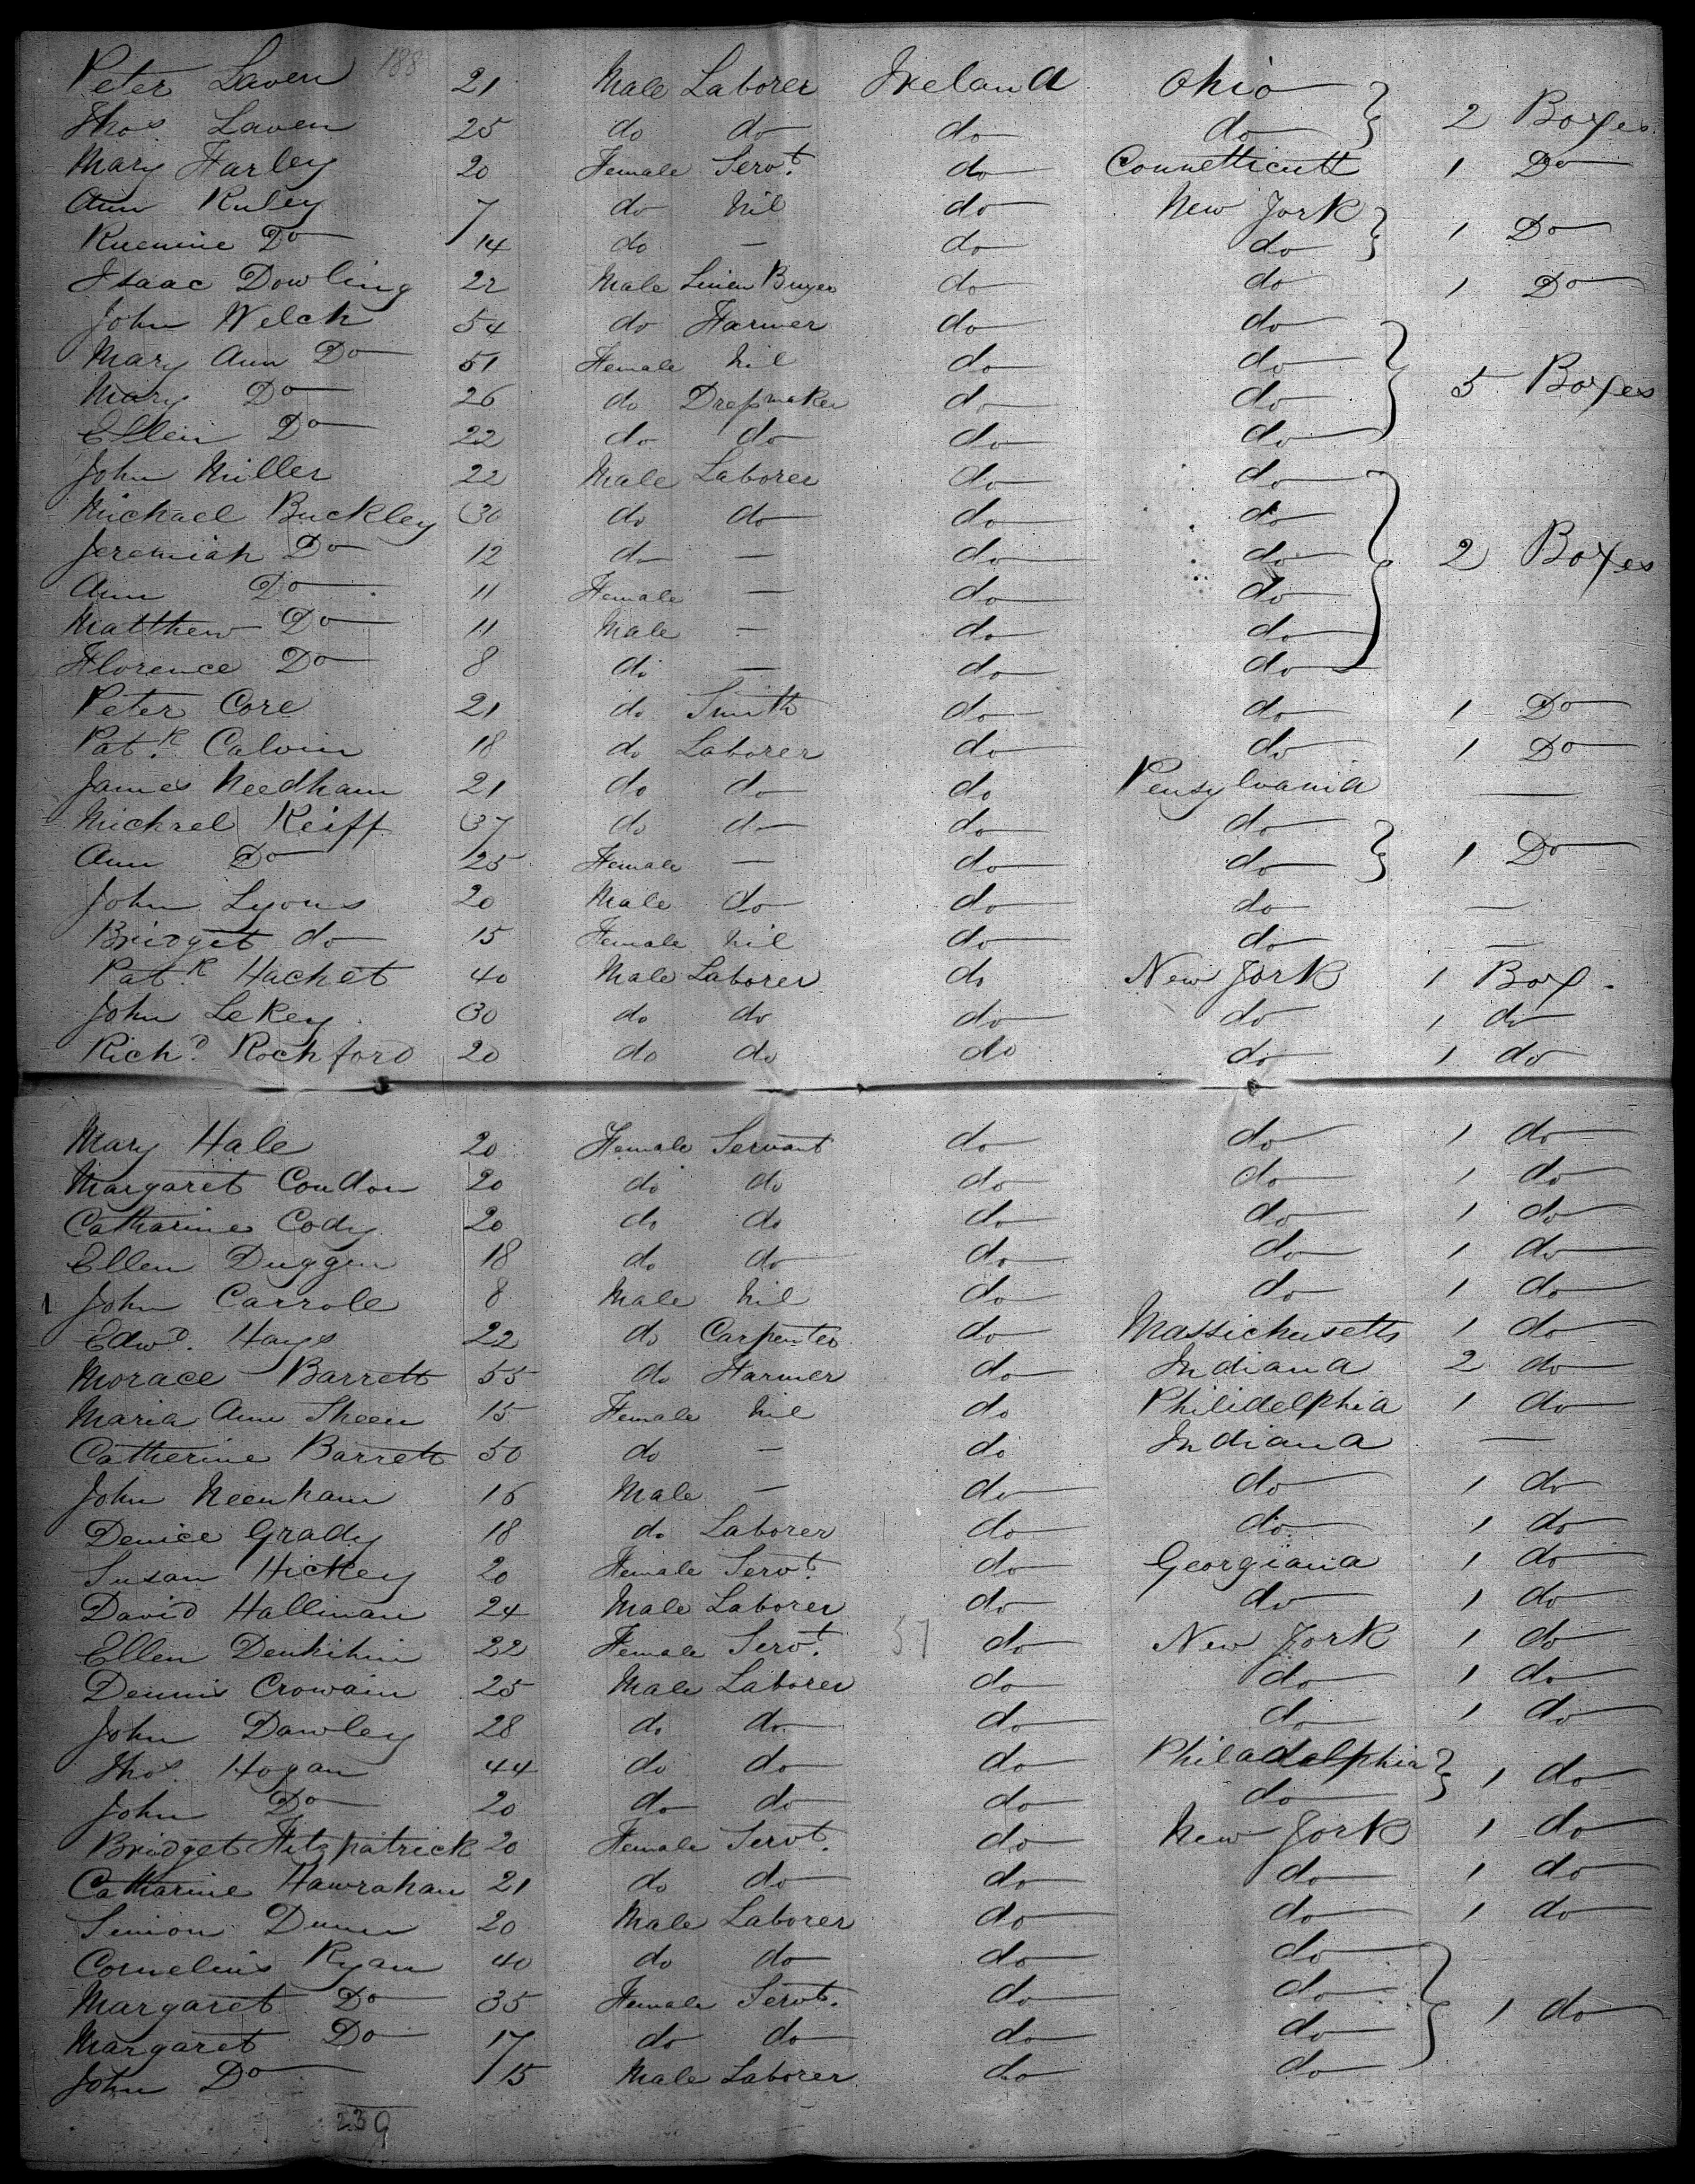 188
Peter Laven 21 Male Laborer Ireland Ohio
Thos. Laven 25 do do do do } 2 Boxes
Mary Farley 20 Female Servt. do Connetticutt 1 Do
Ann Ruley 7 do Nil do New York
Do 14 do — do do } 1 Do
Isaac Dowling 22 Male Linen Buyer do do 1 Do
John Welch 54 do Farmer do do
Mary Ann Do 51 Female Nil do do
Mary Do 26 do Dressmaker do do } 5 Boxes
Ellen Do 22 do do do do
John Miller 22 Male Laborer do do
Michael Buckley 30 do do do do
Jeremiah Do 12 do — do do } 2 Boxes
Ann Do 11 Female — do do
Matthew Do 11 Male — do do
Florence Do 8 do — do do
Peter Core 21 do Smith do do 1 Do
Patk. Calvin 18 do Laborer do do 1 Do
James Needham 21 do do do Pensylvania —
Michael Keiff 37 do do do do
Ann Do 25 Female — do do } 1 Do
John Lyons 20 Male do do do —
Bridget do 15 Female Nil do do —
Patk. Hachet 40 Male Laborer do New York 1 Box.
John LeKey 30 do do do do 1 do
Richd. Rochford 20 do do do do 1 do
Mary Hale 20 Female Servant do do 1 do
Margaret Condon 20 do do do do 1 do
Catharine Cody 20 do do do do 1 do
Ellen Duggen 18 do do do do 1 do
1 John Carrole 8 Male Nil do do 1 do
Edwd. Hays 22 do Carpenter do Massichusetts 1 do
Morace Barrett 55 do Farmer do Indiana 2 do
Maria Ann Sheen 15 Female Nil do Philidelphia 1 do
Catherine Barrett 50 do — do Indiana —
John Neenham 16 Male — do do 1 do
Denice Grady 18 do Laborer do do 1 do
Susan Hickey 20 Female Servt. do Georgiana 1 do
David Hallinan 24 Male Laborer do do 1 do
Ellen Denkihin 22 Female Servt. 57 do New York 1 do
Dennis Crowain 25 Male Laborer do do 1 do
John Dawley 28 do do do do 1 do
Thos. Hogan 44 do do do Philadelphia
John Do 20 do do do do } 1 do
Bridget Fitzpatrick 20 Female Servt. do New York 1 do
Catharine Hawrahan 21 do do do do 1 do
Simon Dunn 20 Male Laborer do do 1 do
Cornelius Ryan 40 do do do do
Margaret Do 35 Female Servt. do do } 1 do
Margaret Do 17 do do do do
John Do 15 Male Laborer do do
239